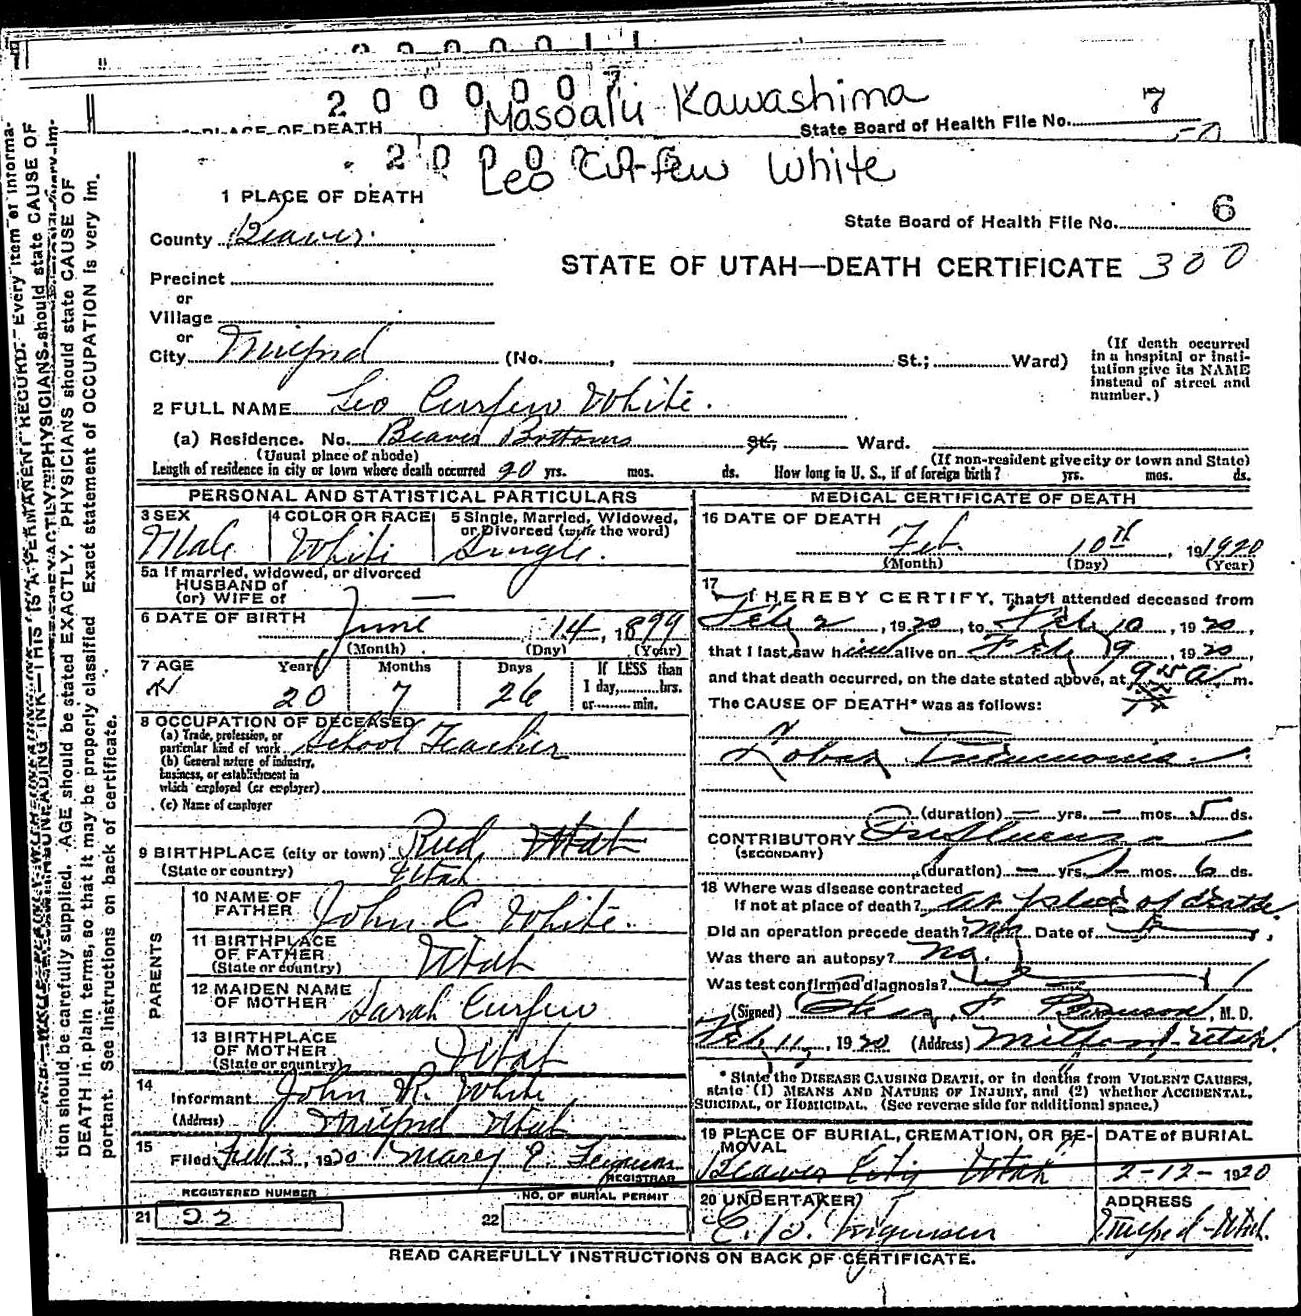 2000007
Masoatu Kawashima
7
PLACE OF DEATH
State Board of Health File No.
Leo Curfew White
1 PLACE OF DEATH
6
State Board of Health File No.
County Beaver.
STATE OF UTAH—DEATH CERTIFICATE 300
Precinct
or
Village
or
City Milford (No. , St.; Ward)
(If death occurred in a hospital or insti-
tution give its NAME
instead of street and
number.)
2 FULL NAME Leo Curfew White.
(a) Residence. No. Beaver Bottoms St., Ward.
(Usual place of abode) (If non-resident give city or town and State)
Length of residence in city or town where death occurred 20 yrs. mos. ds. How long in U. S., if of foreign birth? yrs. mos. ds.
PERSONAL AND STATISTICAL PARTICULARS
3 SEX
Male
4 COLOR OR RACE
White
5 Single, Married, Widowed,
or Divorced (write the word)
Single.
5a If married, widowed, or divorced
HUSBAND of
(or) WIFE of —
6 DATE OF BIRTH June 14, 1899
(Month) (Day) (Year)
7 AGE Years Months Days If LESS than
20 7 26 1 day, hrs.
or min.
8 OCCUPATION OF DECEASED
(a) Trade, profession, or
particular kind of work School Teacher
(b) General nature of industry,
business, or establishment in
which employed (or employer)
(c) Name of employer
9 BIRTHPLACE (city or town) Utah
(State or country) Utah
PARENTS
10 NAME OF
FATHER John C White.
11 BIRTHPLACE
OF FATHER Utah
(State or country)
12 MAIDEN NAME
OF MOTHER Sarah Curfew
13 BIRTHPLACE
OF MOTHER Utah
(State or country)
14
Informant John R. White
(Address) Milford Utah
15
Filed Feb 13, 1920 Ferguson
REGISTRAR
REGISTERED NUMBER
21 22
NO. OF BURIAL PERMIT
22
MEDICAL CERTIFICATE OF DEATH
16 DATE OF DEATH
Feb. 10th, 191920
(Month) (Day) (Year)
17
I HEREBY CERTIFY, That I attended deceased from
Feb 2, 1920, to Feb 10, 1920,
that I last saw him alive on Feb 9, 1920,
and that death occurred, on the date stated above, at 9 15 a. m.
The CAUSE OF DEATH* was as follows:
Lobar Pneumonia
(duration) — yrs. — mos. 5 ds.
CONTRIBUTORY Influenza
(SECONDARY)
(duration) — yrs. — mos. 6 ds.
18 Where was disease contracted
If not at place of death? At place of death
Did an operation precede death? No Date of
Was there an autopsy? No.
Was test confirmed diagnosis?
(Signed) Ferguson, M. D.
Feb 11, 1920 (Address) Milford Utah.
* State the DISEASE CAUSING DEATH, or in deaths from VIOLENT CAUSES,
state (1) MEANS AND NATURE OF INJURY, and (2) whether ACCIDENTAL,
SUICIDAL, or HOMICIDAL. (See reverse side for additional space.)
19 PLACE OF BURIAL, CREMATION, OR RE-
MOVAL
Beaver City Utah
DATE of BURIAL
2-12-1920
20 UNDERTAKER
ADDRESS
Milford Utah.
READ CAREFULLY INSTRUCTIONS ON BACK OF CERTIFICATE.
tion should be carefully supplied. AGE should be stated EXACTLY. PHYSICIANS should state CAUSE OF
DEATH in plain terms, so that it may be properly classified Exact statement of OCCUPATION is very im-
portant. See instructions on back of certificate.